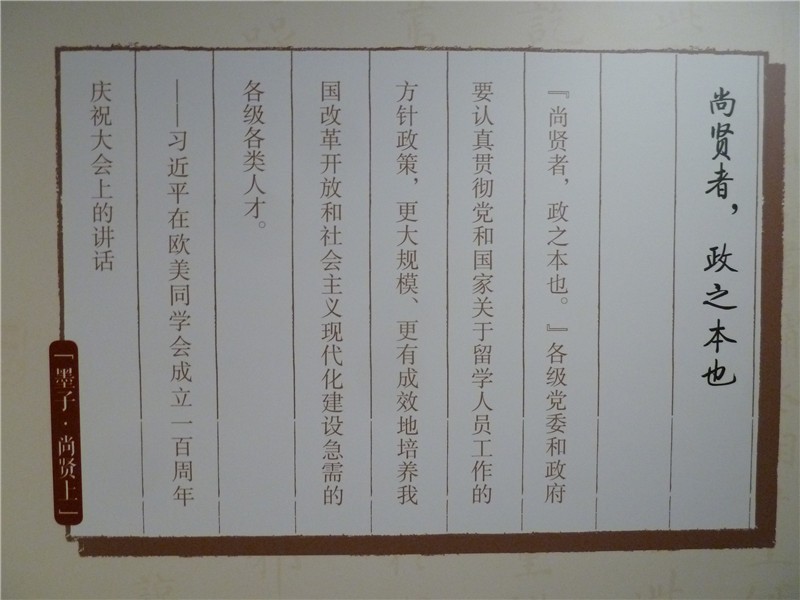 尚贤者，政之本也
『尚贤者，政之本也。』各级党委和政府
要认真贯彻党和国家关于留学人员工作的
方针政策，更大规模、更有成效地培养我
国改革开放和社会主义现代化建设急需的
各级各类人才。
——习近平在欧美同学会成立一百周年
庆祝大会上的讲话
「墨子·尚贤上」